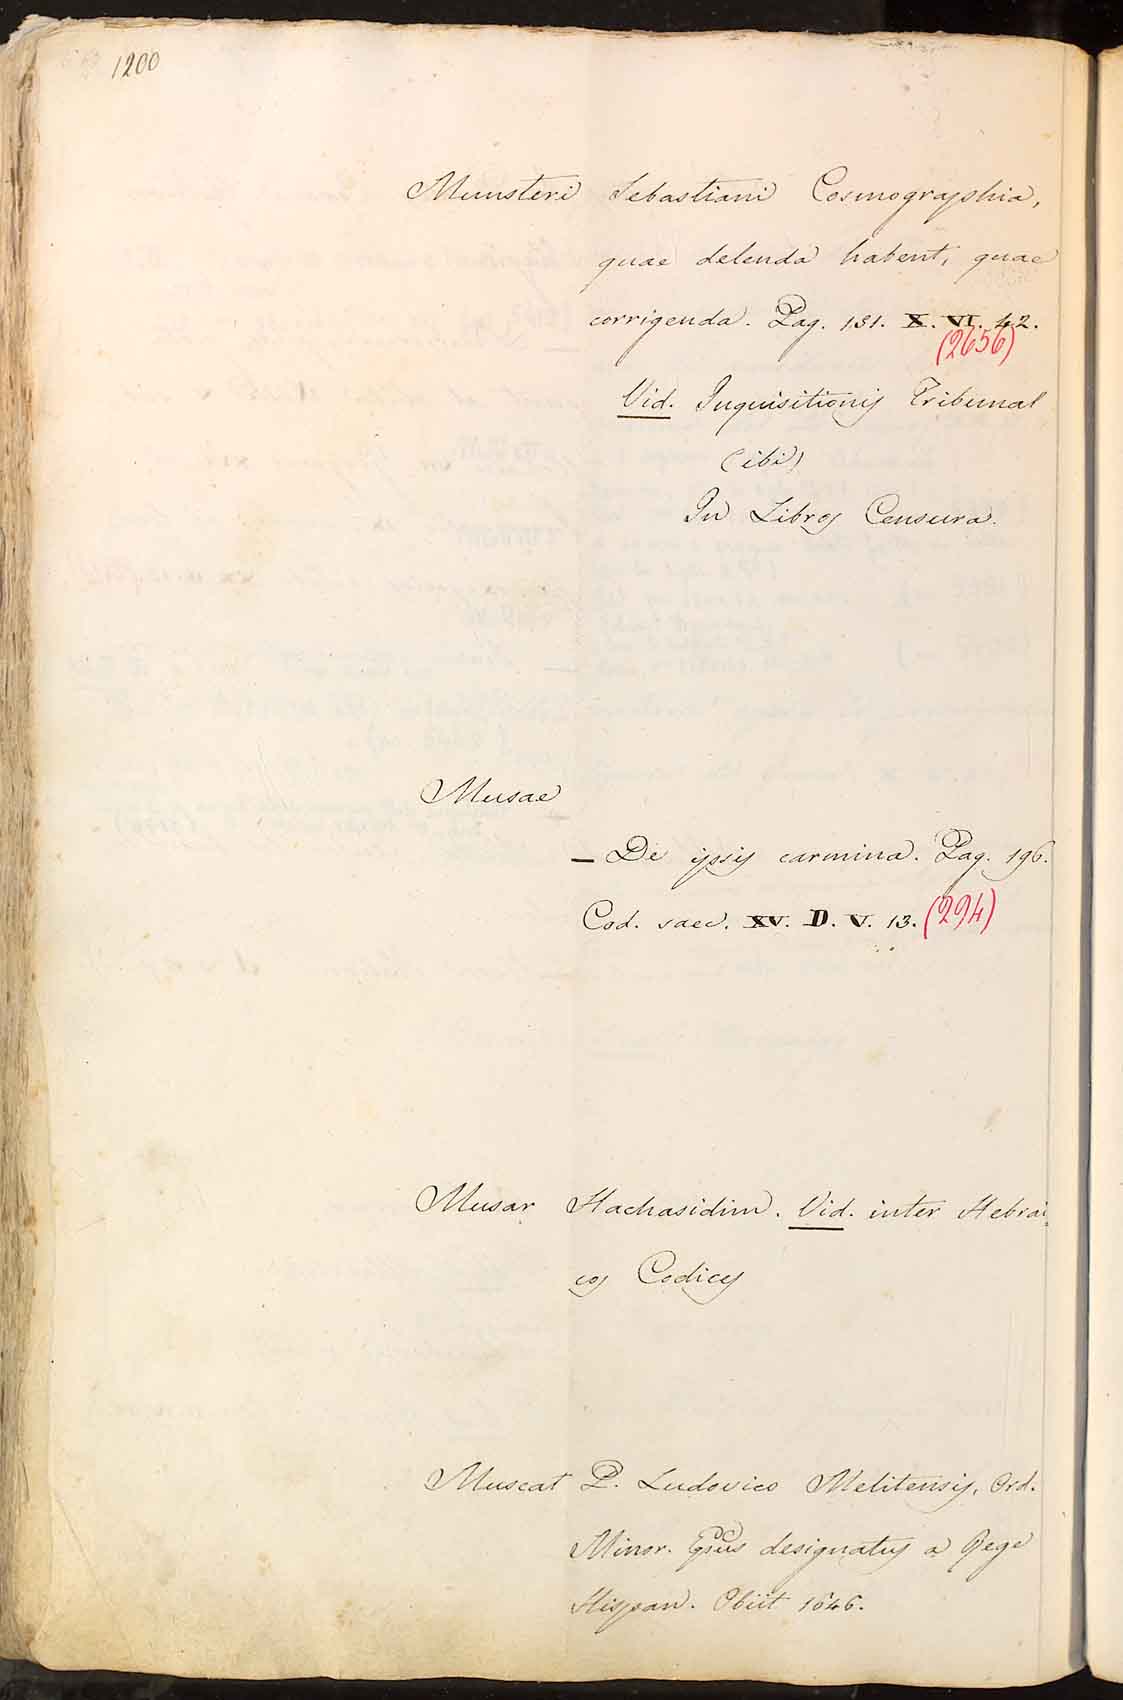 1200
Munsteri Sebastiani Cosmographia,
quae delenda habent, quae
corrigenda. Pag. 131. X. VI. 42.
(2656)
Vid. Inquisitionis Tribunal
(ibi)
In Libros Censura.
Musae
— De ipsis carmina. Pag. 196.
Cod. saec. XV. D. V. 13. (294)
Musar Hachasidim. Vid. inter Hebrai-
cos Codices
Muscat P. Ludovico Melitensis, Ord.
Minor. Epcus designatus a Rege
Hispan. Obiit 1646.